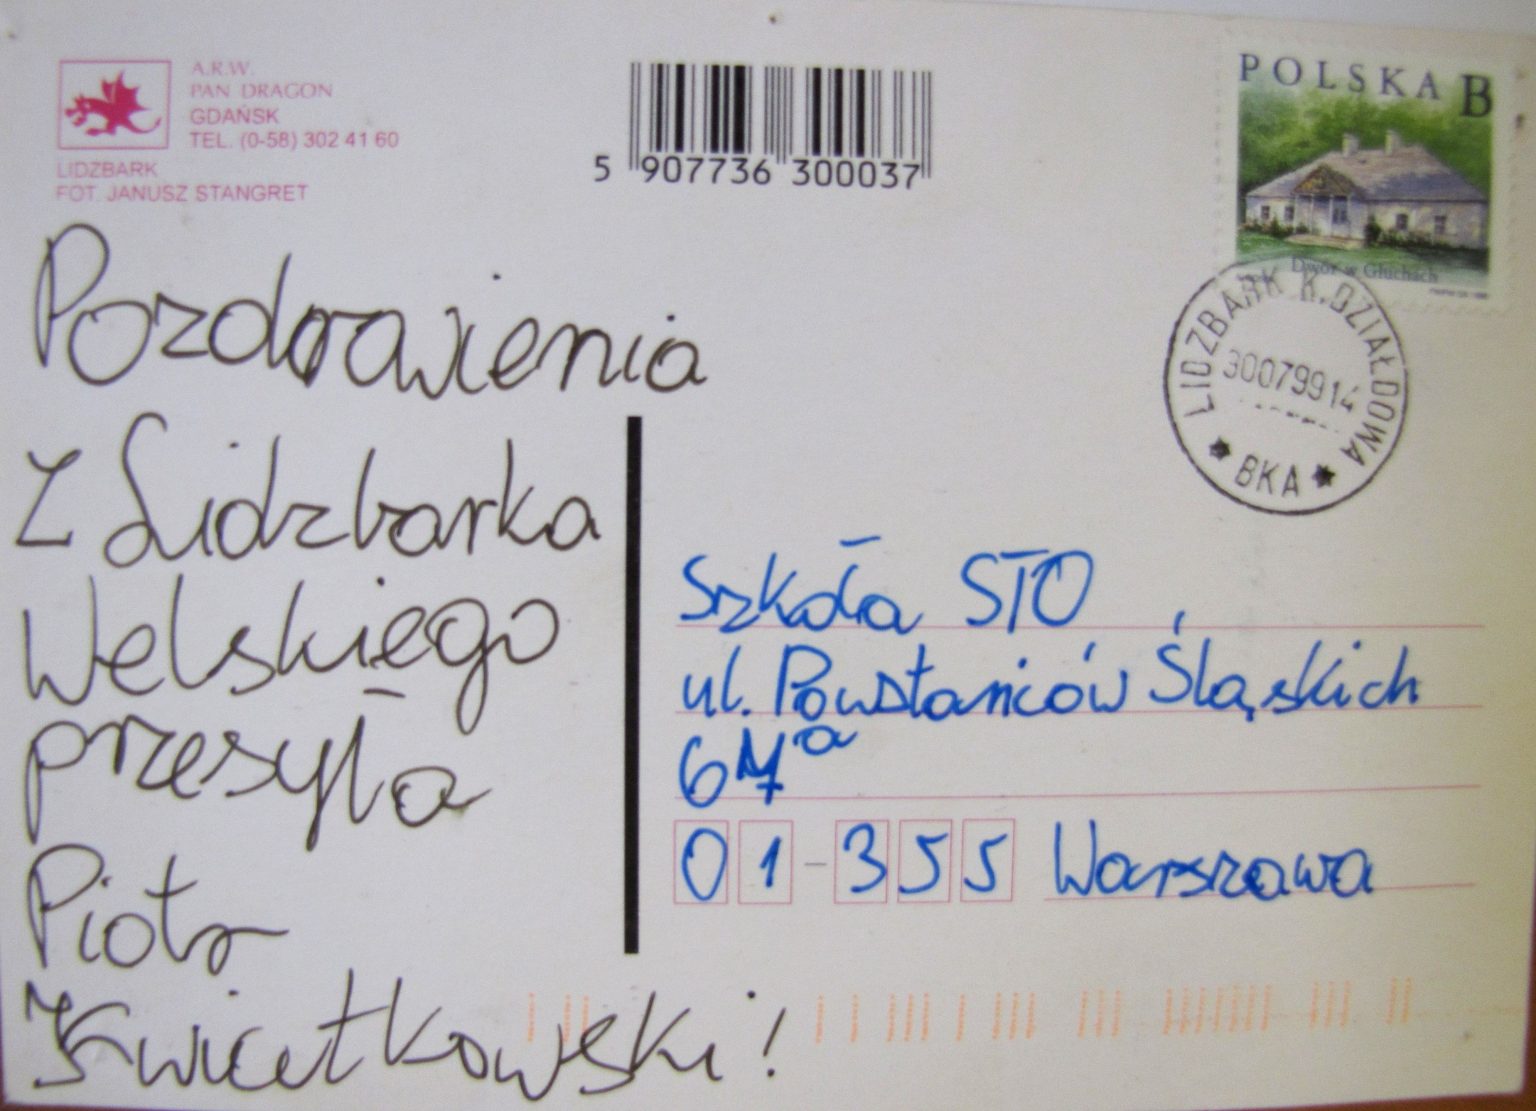 A.R.W.
PAN DRAGON
GDAŃSK
TEL. (0-58) 302 41 60
LIDZBARK
FOT. JANUSZ STANGRET
5 907736 300037
POLSKA B
Dwór w Głuchach
LIDZBARK K.DZIAŁDOWA
30079914
* BKA *
Pozdrowienia
Z Lidzbarka
Welskiego
przesyła
Piotr
Kwiatkowski!
Szkoła STO
ul. Powstańców Śląskich
67a
01-355 Warszawa